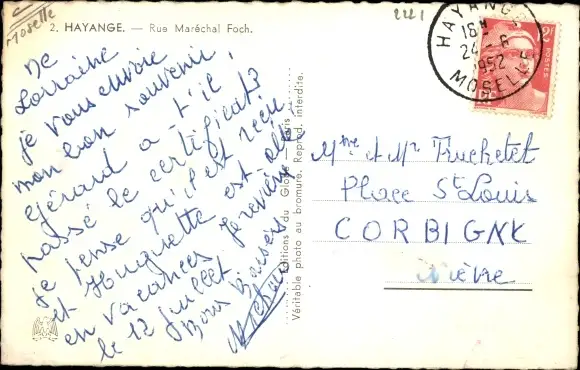 Moselle
2. HAYANGE. — Rue Maréchal Foch.
2221
HAYANGE
18H
24-6
1952
MOSELLE
POSTES
De
Lorraine
je vous envoie
mon bon souvenir
Gérard a-t'il
passé le certificat?
je pense qu'il est reçu
et Huguette est elle
en vacances je reviens
le 12 juillet.
Bons Baisers
Éditions du Globe - Paris
Véritable photo au bromure. Reprod. interdite.
Mme et Mr Fruchetet
Place St Louis
CORBIGNY
Nièvre